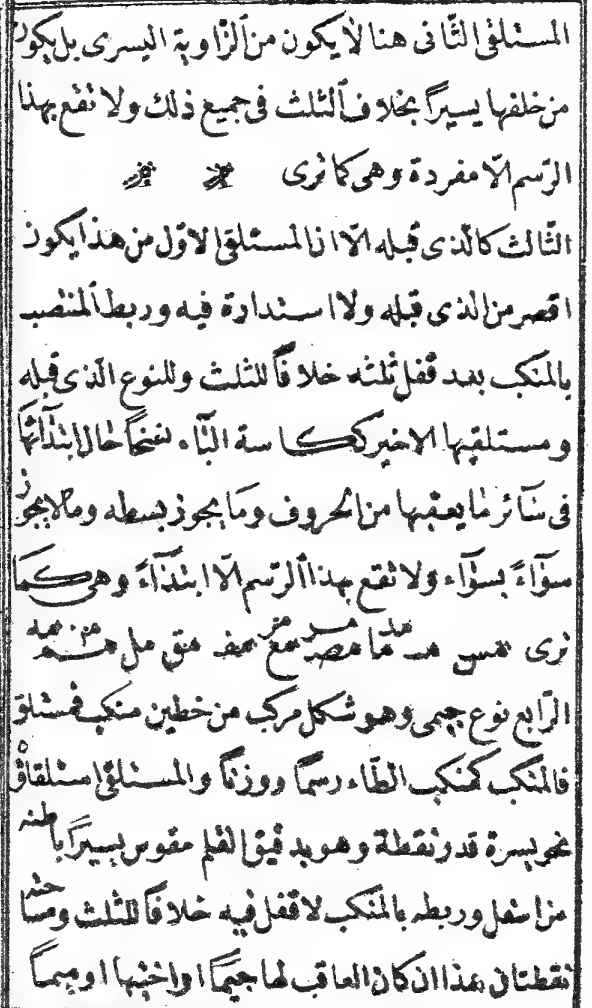 المستلقى الثّانى هنا لا يكون من ٱلزّاوية اليسرى بل يكون
من خلفها يسيرًا بخلاف ٱلثلث فى جميع ذلك ولا تقع بهذا
الرّسم الّا مفردة وهى كما ترى
الثّالث كالّذى قبله الّا ان المستلقى الاوّل من هذا يكون
اقصر من الذى قبله ولا استدارة فيه وربط ٱلمنتصب
بالمنكب بعد قفل ثلثه خلافًا للثلث وللنوع الّذى قبله
ومستلقيها الاخير ككاسة البّاء نسخًا حال ابتدآئها
فى سآئر ما يعقبها من الحروف وما يجوز بسطه وما لا يجوز
سوآءً بسوآء ولا تقع بهذا ٱلرّسم الّا ابتدآءً وهى كما
ترى
الرّابع نوع جيمى وهو شكل مركب من خطين منكب فمستلق
فالمنكب كمنكب الطّاء رسمًا ووزنًا والمستلقى استلقاؤه
نحو يسرة قدر نقطة وهو بدقيق القلم مقوس يسيرًا باطنه
من اسفل وربطه بالمنكب لا قفل فيه خلافًا للثلث ومساحته
نقطتان هذا ان كان العاقب لها جيمًا او اختيها او ميمًا